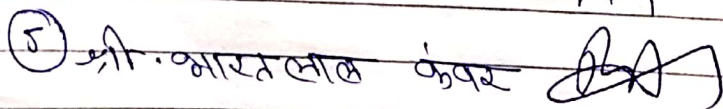 ५ श्री. भारतलाल कंवर